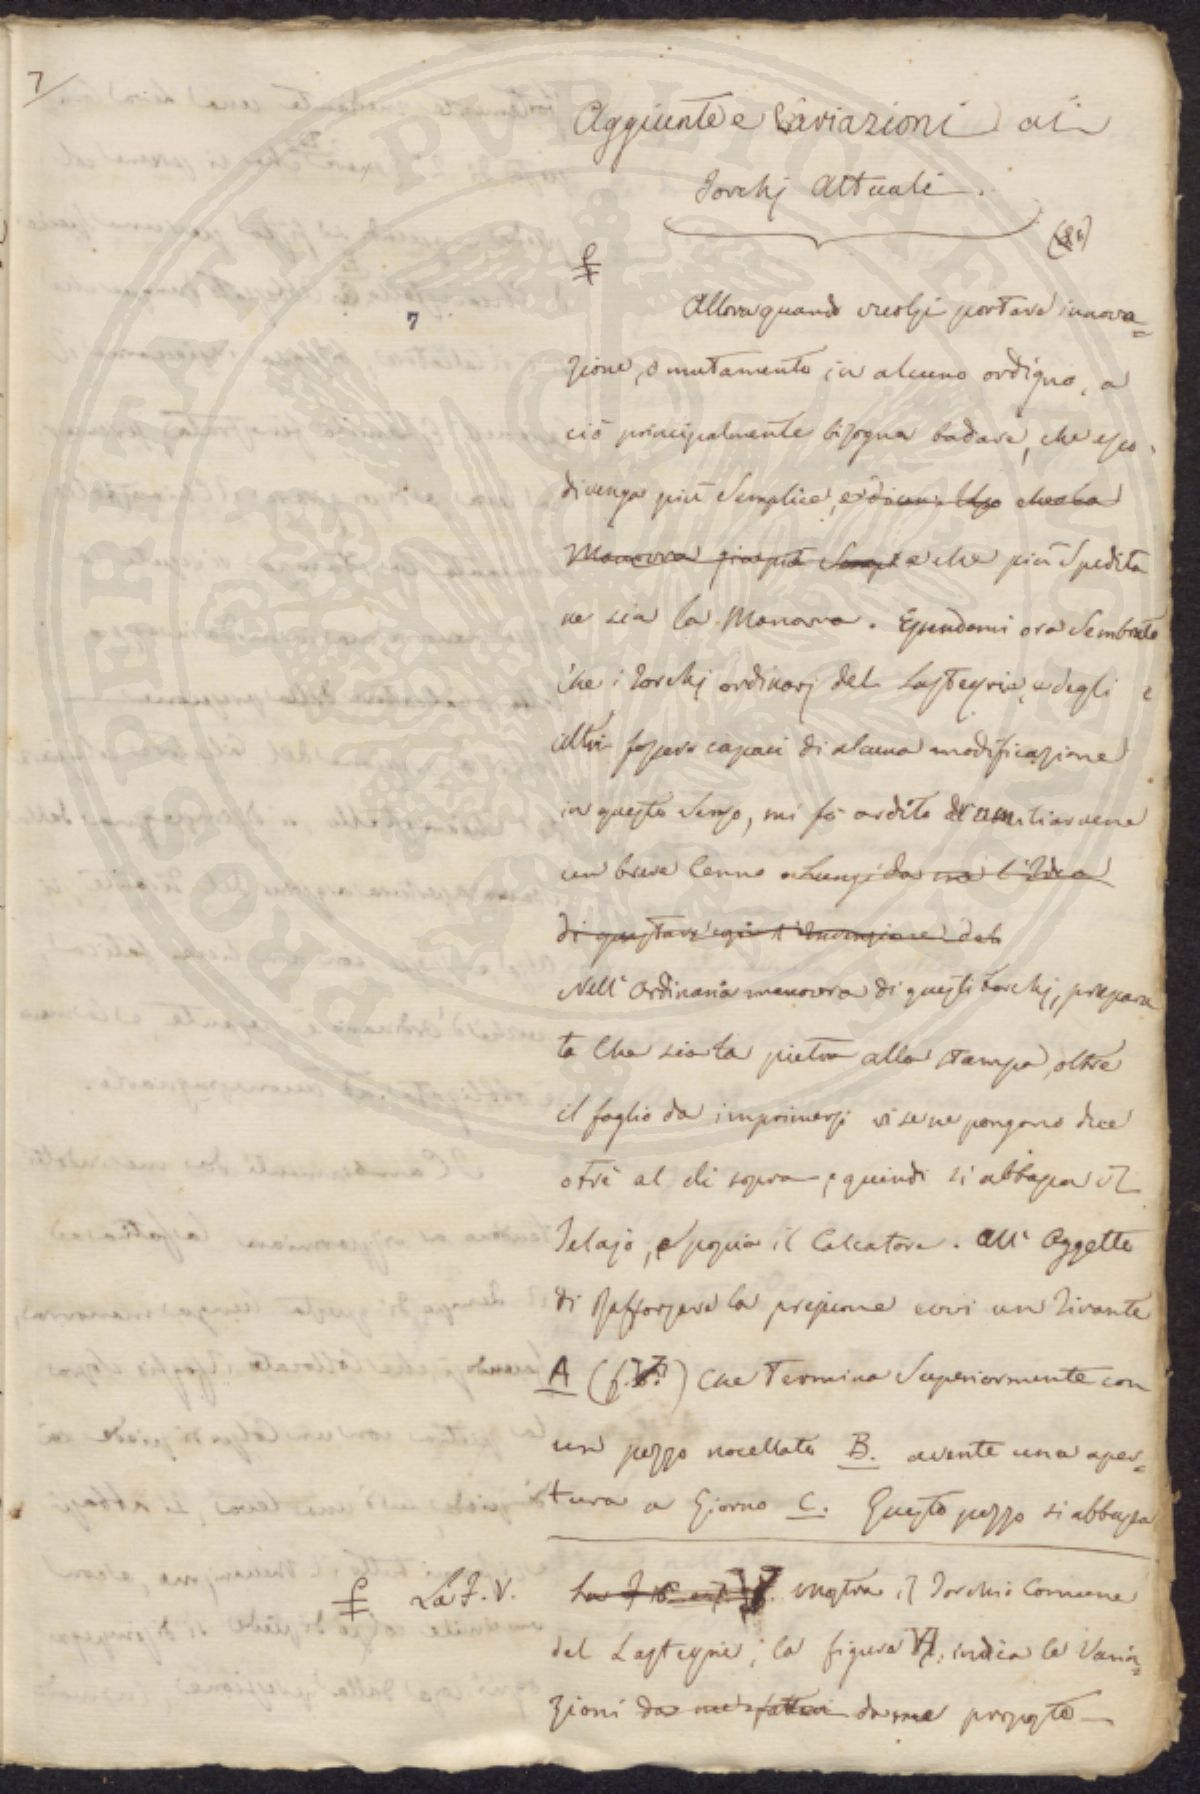 7
Aggiunte e Variazioni ai
Torchj Attuali.
7
Allora quando vuolsi portare innova=
zione, o mutamento in alcuno ordigno, a
ciò principalmente bisogna badare, che esso
divenga più semplice, e
Manovra e che più spedita
ne sia la Manovra. Essendomi ora sembrato
che i Torchj ordinarj del Lasteyrie, e degli
altri fossero capaci di alcuna modificazione
in questo senso, mi fò ardito di umiliarvene
un breve Cenno
di questa
Nell'Ordinaria manovra di questi torchj, prepara
ta che sia la pietra alla stampa, oltre
il foglio da imprimersi vi se ne pongono due
o tre al di sopra, e quindi si abbassa il
Telajo, e poscia il Calcatore. All'Oggetto
di Rafforzare la pressione evvi un Tirante
A (f. ) che termina Superiormente con
un pezzo nocellato B. avente una aper=
tura a Giorno C. Questo pezzo si abbassa
La F. V. mostra il Torchio Comune
del Lasteyrie; la figura VI. indica le Varia=
zioni da me fatte da me proposte